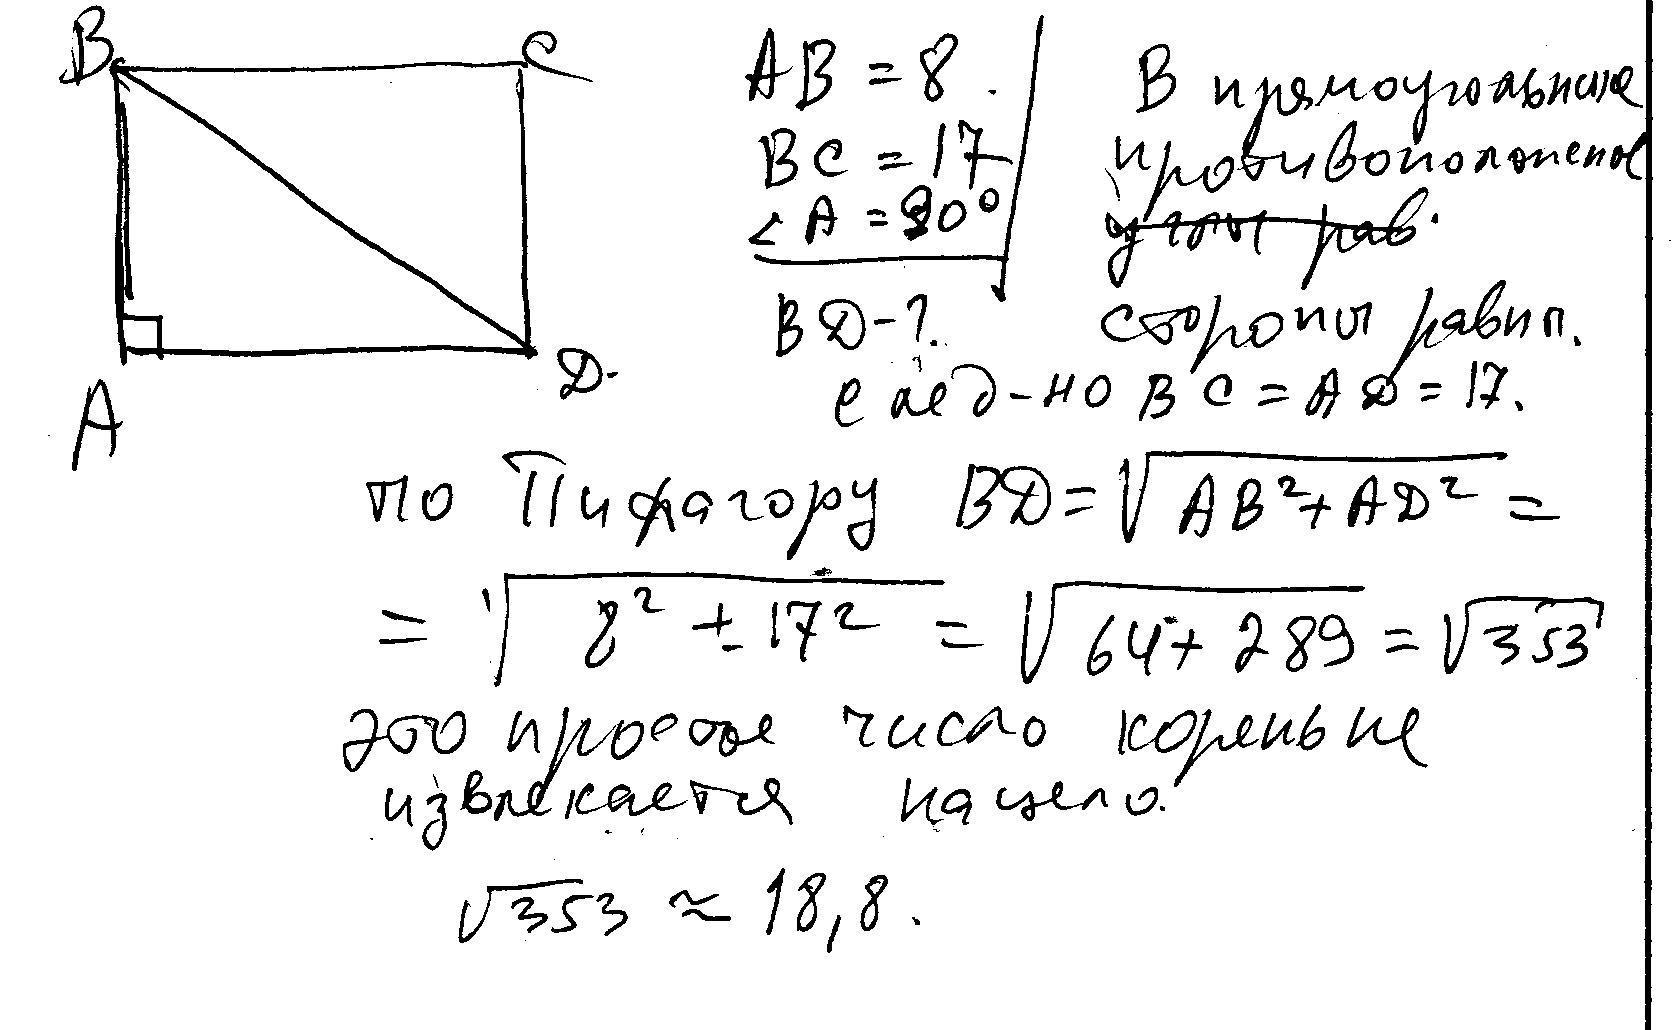 B
C
A
D.
AB = 8.
BC = 17
< A = 90°
BD - ?.
В прямоугольнике
противоположные
углы рав.
стороны равны.
след-но BC = AD = 17.
по Пифагору BD = √AB² + AD² =
= √8² + 17² = √64 + 289 = √353
это простое число корень не
извлекается нацело.
√353 ≈ 18,8.